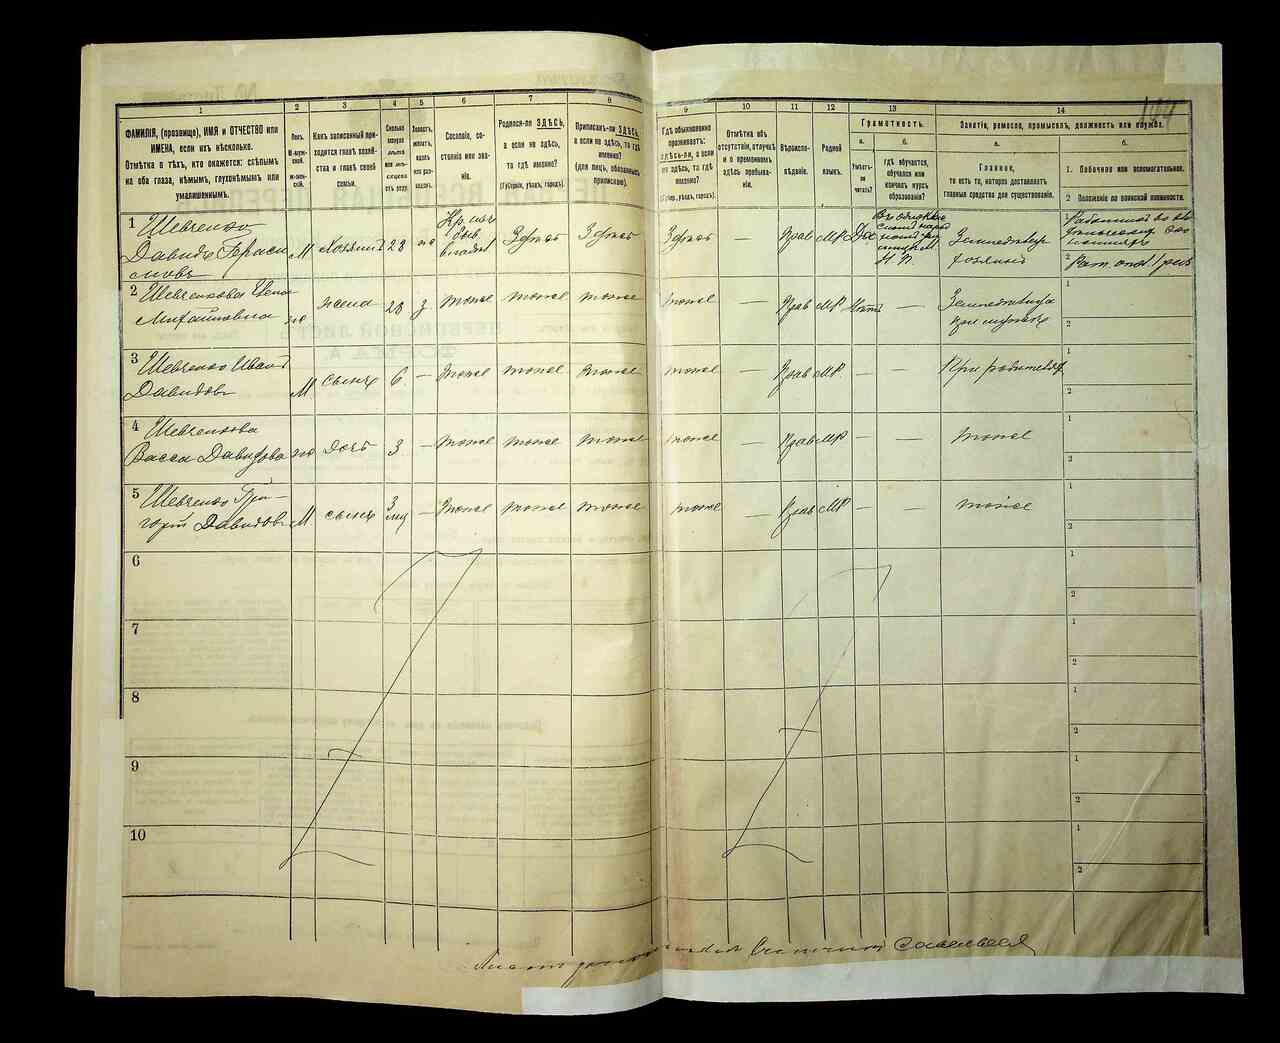 144
1 2 3 4 5 6 7 8 9 10 11 12 13 14
ФАМИЛІЯ, (прозвище), ИМЯ и ОТЧЕСТВО или
ИМЕНА, если ихъ нѣсколько.
Отмѣтка о тѣхъ, кто окажется: слѣпымъ
на оба глаза, нѣмымъ, глухонѣмымъ или
умалишеннымъ.
Полъ.
М-мужской.
Ж-женскій.
Какъ записанный приходится
главѣ хозяйства
и главѣ своей
семьи.
Сколько
минуло
лѣтъ
или мѣсяцевъ
отъ роду.
Холостъ,
женатъ,
вдовъ
или разведенъ.
Сословіе, состояніе
или званіе.
Родился-ли ЗДѢСЬ,
а если не здѣсь,
то гдѣ именно?
(Губернія, уѣздъ, городъ).
Приписанъ-ли ЗДѢСЬ,
а если не здѣсь, то гдѣ
именно?
(для лицъ, обязанныхъ
припискою).
Гдѣ обыкновенно
проживаетъ:
здѣсь-ли, а если
не здѣсь, то гдѣ
именно?
(Губер., уѣздъ, городъ).
Отмѣтка объ
отсутствіи, отлучкѣ
и о временномъ
здѣсь пребываніи.
Вѣроисповѣданіе.
Родной
языкъ.
Грамотность.
а.
Умѣетъ-ли
читать?
б.
гдѣ обучается,
обучался или
кончилъ курсъ
образованія?
Занятіе, ремесло, промыселъ, должность или служба.
а.
Главное,
то есть то, которое доставляетъ
главныя средства для существованія.
б.
1. Побочное или вспомогательное.
2 Положеніе по воинской повинности.
1 Шевченко
Давидъ Герасимовъ
М Хозяинъ 28 ж Кр. изъ
быв.
владѣл
Здѣсь Здѣсь Здѣсь — Прав МР Да
Н. П.
Земледѣлецъ
хозяинъ
1
2 Рат. опол. 1 раз
2 Шевченкова
Михайловна
ж жена 28 з тоже тоже тоже тоже — Прав МР Нѣтъ
Земледѣлица
при мужѣ
1
2
3 Шевченко Иванъ
Давидовъ
М сынъ 6 — тоже тоже тоже тоже — Прав МР — — При родителяхъ
1
2
4 Шевченкова
Васса Давидова
ж дочь 3 — тоже тоже тоже тоже — Прав МР — — тоже
1
2
5 Шевченко Гри-
горій Давидовъ
М сынъ 3 — тоже тоже тоже тоже — Прав МР — — тоже
1
2
6
1
2
7
1
2
8
1
2
9
1
2
10
1
2